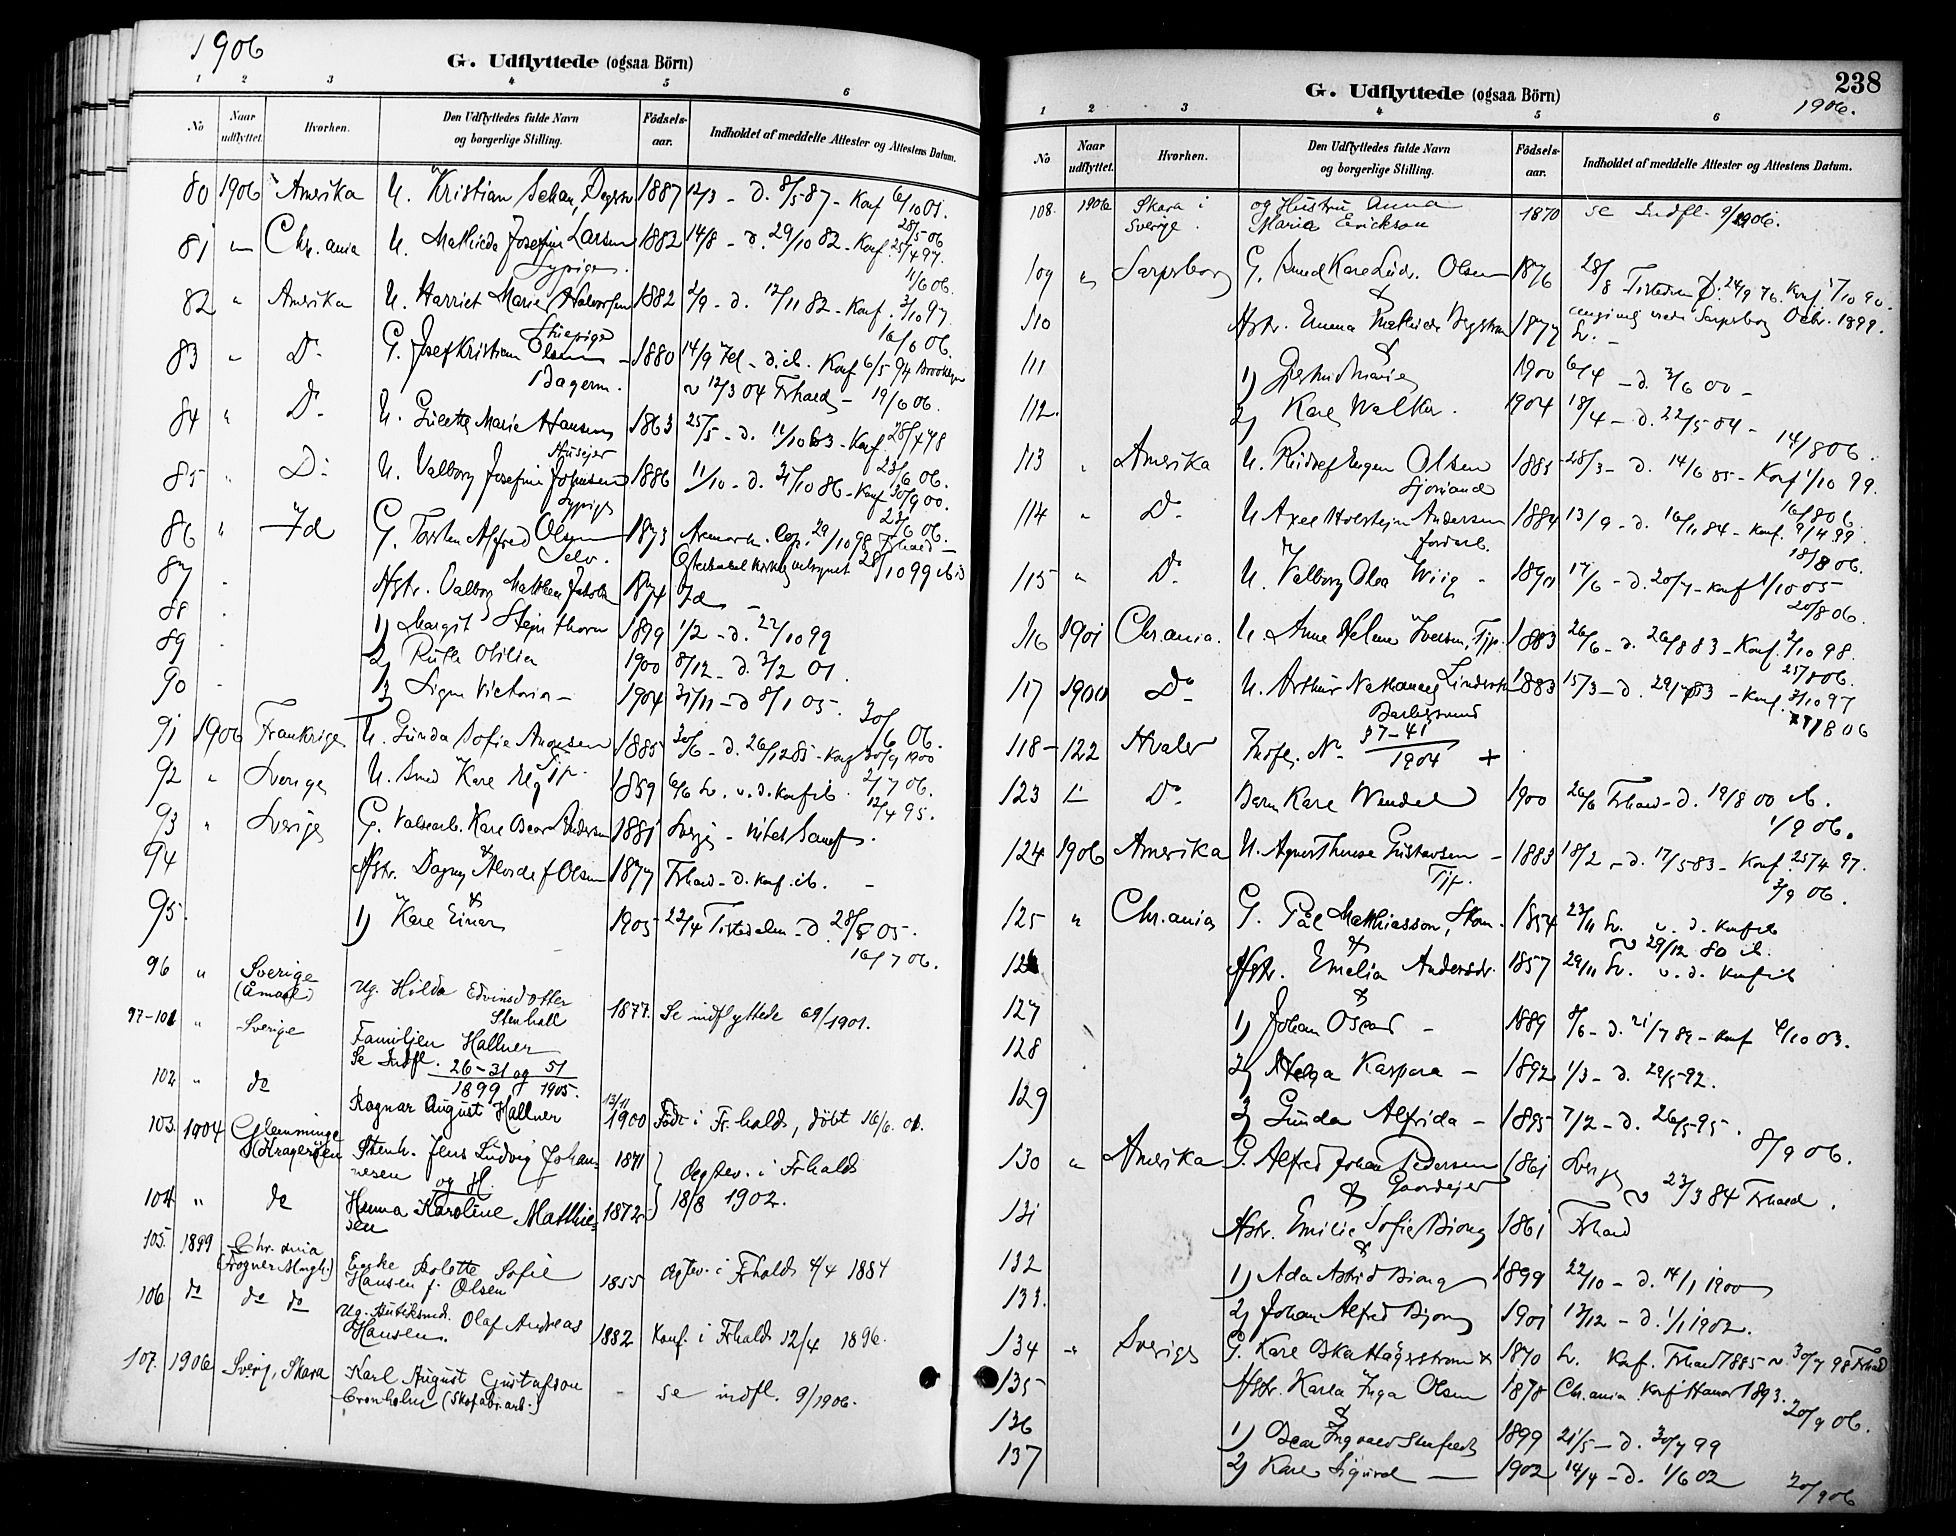 1906
G. Udflyttede (ogsaa Börn)
1 2 3 4 5 6
No
Naar udflyttet.
Hvorhen.
Den Udflyttedes fulde Navn og borgerlige Stilling.
Födsels-aar.
Indholdet af meddelte Attester og Attestens Datum.
80 1906 Amerika U. Kristian 1887 12/3 - d. 8/5-87 - Konf 6/10 01.
28/5-06
81 Chr.ania U. Mathilda Josefine Larsen 1882 14/8 - d. 29/10 82 - Konf. 25/4 97.
Sypige. 11/6 06.
82 " Amerika U. Harriet Marie Halvorsen 1882 2/9 - d. 12/11 82 - Konf. 3/10 97
16/6 06.
83 " Do G. Josef Kristian Olsen - 1880 14/9 - d. ib. Konf 6/5 94
Bagerm. ~ 12/3 04 Frhald - 19/6 06.
84 " Do U. Marie Hansen 1863 25/5 - d. 11/10 63 - Konf 28/4 78
Husejer 23/6 06.
85 " Do U. Valborg Josefine Johnsen 1886 11/10 - d. 31/10 86 - Konf 30/9 00.
Sypige 23/6 06.
86 " Id G. Torsten Alfred Olsen 1873 Aremark. 29/10 98 Frhald -
Selv. 28/10 99
87 Hstr. Valborg 1874 Id -
88 1) Margit 1899 1/2 - d. 22/10 99
89 2) Ruth Otilia 1900 8/12 - d. 3/2 01.
90 3) Signe Victoria - 1904 31/11 - d 8/1 05.
30/6 06.
91 1906 Frankrige U. Gunda Sofie Andersen 1885 30/6 - d. 26/12 85 - Konf 30/9 1900
Tjp. 2/7 06.
92 " Sverige U. Smed Kare Elg 1859 6/6 Sv. v. d. Konf ib.
12/4 95.
93 " Sverige G. Valsearb. Kare Oscar Andersen 1881 Sverig -
94 Hstr. Dagny Alvilde f Olsen 1877 Frhald - d. Konf. ib. -
&
95. 1) Kare Einar 1905 22/4 Tistedalen - d. 28/5 05.
16/7 06.
96 " Sverige (Åmaal) Ug. Hilda Edvinsdotter Stenhall 1877. Se indflyttede 69/1901.
97-101 " Sverige Familjen Hallner
Se Indfl. 26-31 og 51
1899 1905.
102 " do Ragnar August Hallner 13/11 1900 Födt i Fr.hald, döbt 16/6. 01.
103. 1904 Glemminge (Kragerøen) Stenh. Jens Ludvig Johannesen 1871 } Ægtev. i Frhald
og H.
104 " do Hanna Karoline Matthiesen 1872 } 18/8 1902.
105. 1899 Chr.ania (Frogner Mngh.) Enke Lolotte Sofie Hansen f. Olsen 1855 Ægtev. i Frhald 4/4 1884
106. do do do Ug. Butiksmd. Olaf Andreas Hansen. 1882 Konf. i Frhald 12/4 1896.
107. 1906 Sverig, Skara Karl August Gustafson Cronholm (Skofabr.arb.) - se indfl. 9/1906.
238
G. Udflyttede (ogsaa Börn)
1906.
1 2 3 4 5 6
No
Naar udflyttet.
Hvorhen.
Den Udflyttedes fulde Navn og borgerlige Stilling.
Födsels-aar.
Indholdet af meddelte Attester og Attestens Datum.
108. 1906 Skara i Sverige. og Hustru Anna Maria Erickson 1870 se Indfl. 9/1906.
109 " Sarpsborg G. Smed Kare Ludv. Olsen 1876 28/8 Tistedalen d. 24/9 76. Konf. 5/10 90.
&
110 Hstr. Emma Mathilde Bergstrøm 1877 Sarpsborg Octbr. 1899.
& Sv. -
111 1) Gjertrud Marie 1900 6/4 - d. 3/6 00 -
112. 2) Kare Walter. 1904 18/4 - d. 22/5-04 -
14/8 06.
113 " Amerika U. Eugen Olsen 1885 28/3 - d. 14/6 85 - Konf 1/10 99.
Sjömand 16/8 06.
114 " Do U. Axel Holstejn Andersen 1884 13/9 - d. 16/11 84 - Konf. 9/4 99.
Jordarb. 18/8 06.
115 " Do U. Valborg Olea Wiig - 1890 14/6 - d. 20/7 - Konf 1/10 05
20/8 06.
116 1901 Chr.ania. U. Anne Helene Iversen, Tjp. 1883 26/6 - d. 26/8 83 - Konf. 2/10 98.
25/8 06.
117 1900 Do U. Arthur Nathanael 1883 15/3 - d. 29/7 83 - Konf. 3/10 97
118 - 122 Hvaler No 37-41
1904 +
123 Do Barn Kare Wendel 1900 26/6 Frhald - d. 19/8 00 ib.
1/9 06.
124 1906 Amerika U. Agnes Therese Gustavsen - 1883 18/2 - d. 17/5 83 - Konf. 25/4 97.
Tjp. 3/9 06.
125 " Chr.ania G. Pål Matthiasson, 1854 23/11 Sv. v. d. Konf ib
& ~ 29/12 80 ib.
126 Hstr. Emelia Andersdr. 1857 29/11 Sv. v. d. Konf ib
&
127 1) Johan Oscar - 1889 8/6 - d. 21/7 89 - Konf 4/10 03.
128 2) Helga Kaspara - 1892 1/3 - d. 29/5-92.
129 3) Gunda Alfrida - 1895 7/2 - d. 26/5-95.
8/9 06.
130 " Amerika G. Alfred Johan Pedersen 1861 Sverige
Gaardejer ~ 23/3 84 Frhald.
&
131 Hstr. Emilie Sofie Bjong 1861 Frhald
&
132 1) Ada Astrid Bjong 1899 22/10 - d. 14/1 1900
133. 2) Johan Alfred Bjong 1901 13/12 - d. 1/1 1902.
134 " Sverige G. Kare Oskar Hägerstrøm & 1870 Sv. Konf. Frhald 1885 ~ 30/7 98 Frhald
135 Hstr. Karla Inga Olsen 1878 Chr.ania Konf Hamar 1893.
& 20/9 06.
136 1) Oscar Ingvald 1899 21/5 - d. 30/7 99
137 2) Kare Sigurd - 1902 14/4 - d. 1/6 02
20/9 06